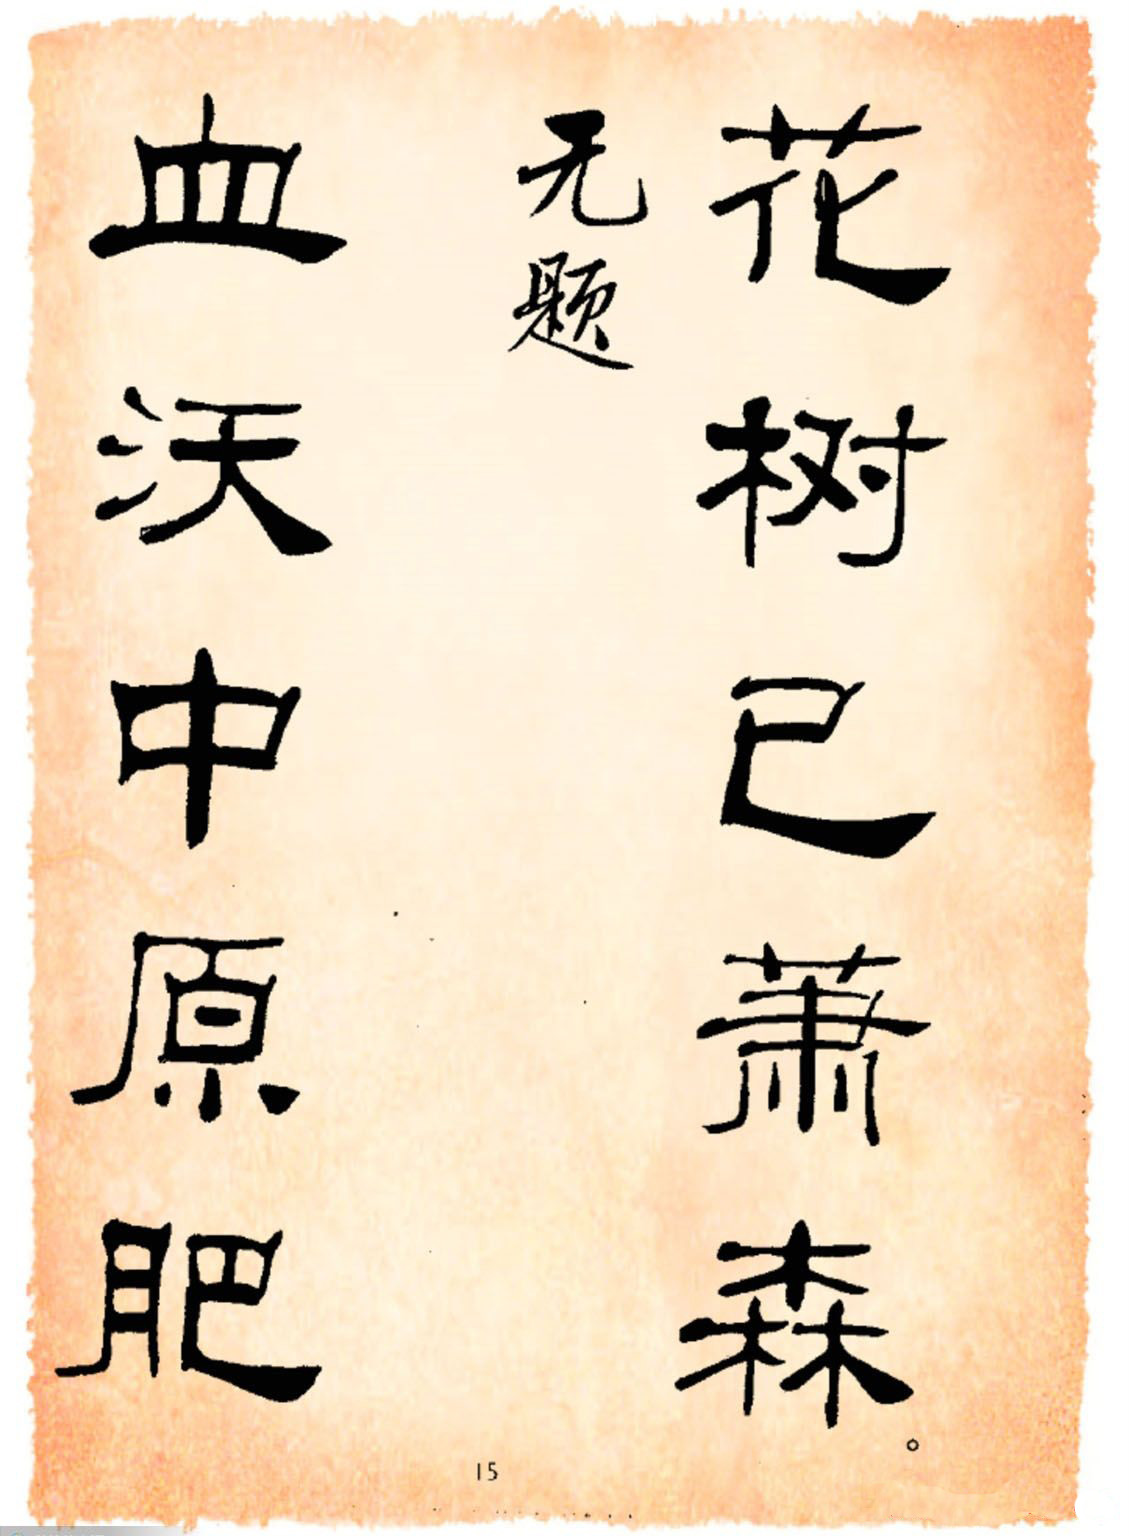 花树已萧森。
无题
血沃中原肥
15